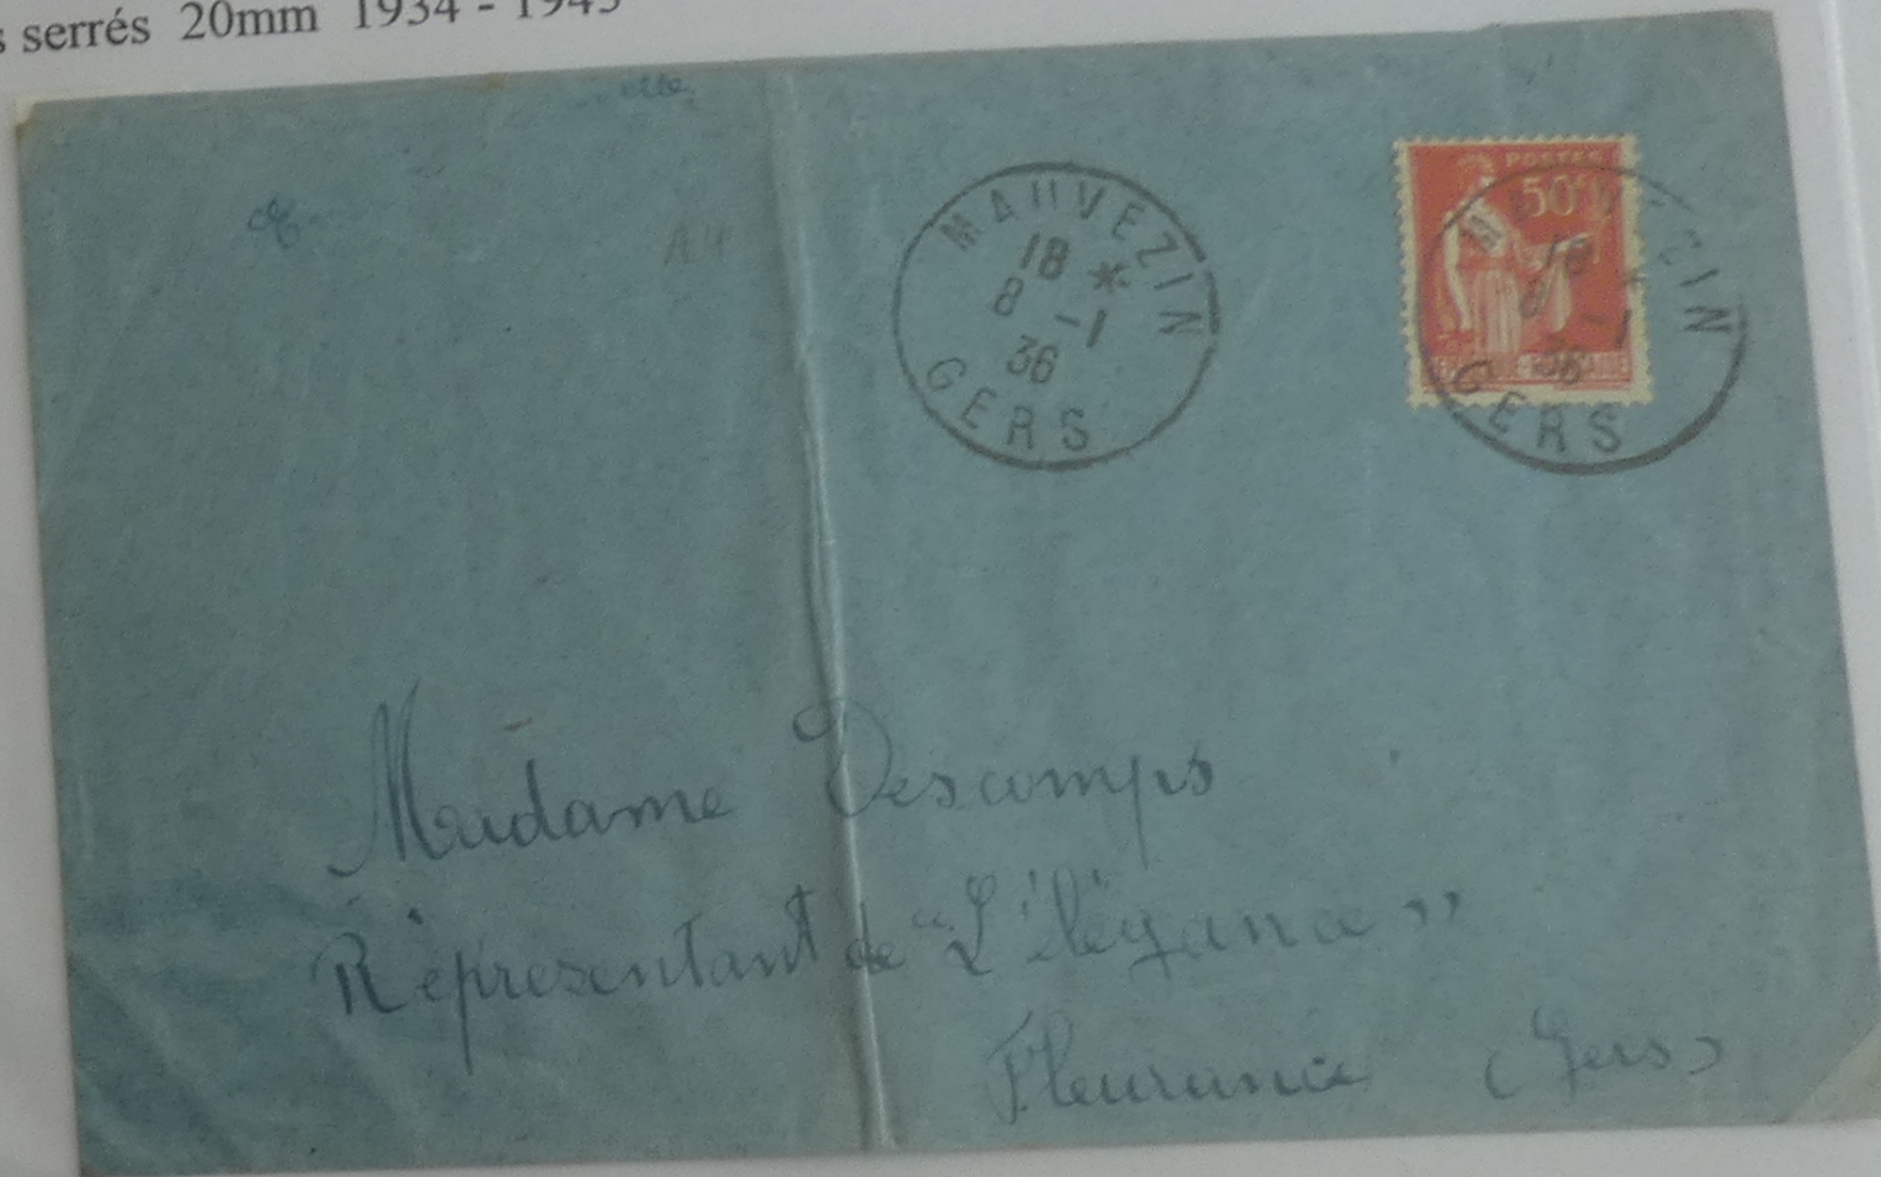 serrés 20mm 1934 - 1945
A4
MAUVEZIN
18 *
8 -1
36
GERS
POSTES
50c
MAUVEZIN
18 *
8 -1
36
GERS
Madame Descamps
Représentant de "L'élégance"
Fleurance (Gers)